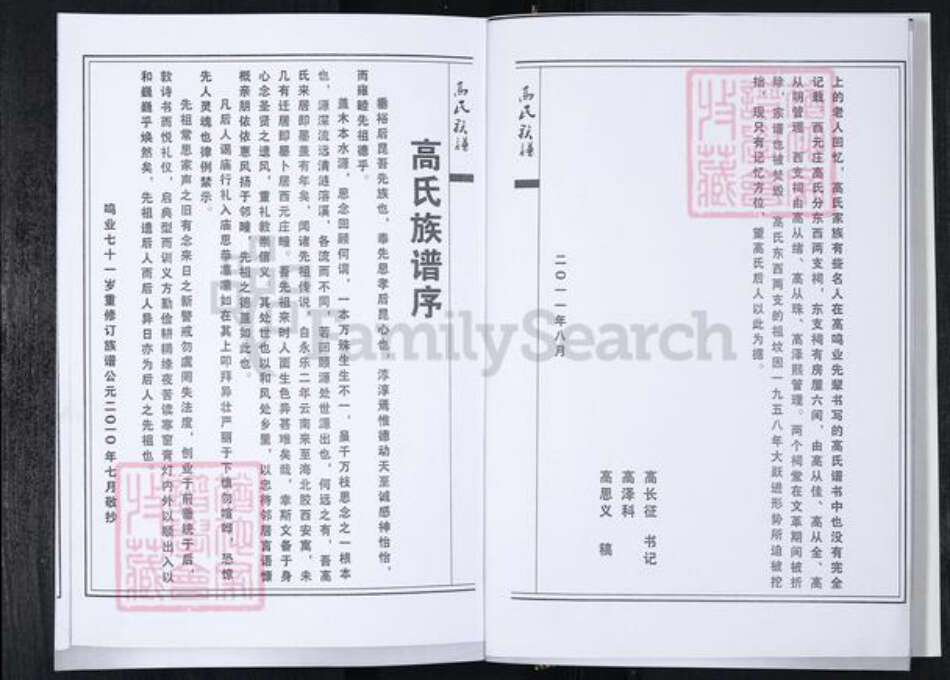 上的老人回忆，高氏家族有些名人在高鸣业先辈书写的高氏谱书中也没有完全
记载，西元庄高氏分东西两支祠，东支祠有房屋六间，由高从佳、高从金、高
从明管理，西支祠由高从绪、高从珠、高泽熙管理。两个祠堂在文革期间被折
除，宗谱也被焚毁，高氏东西两支的祖坟因一九五八年大跃进形势所迫被挖
抬，现只有记忆方位，望高氏后人以此为据。
高长征 书记
高泽科
高思义 稿
二〇一一年八月
高氏族谱
高氏族谱
高氏族谱序
垂裕后昆吾先族也，奉先思孝后昆心也，漆淳焉惟德动天至诚感神怡怡，
而雍睦先祖德乎。
盖木本水源，恩念回顾何谓，一本万殊生生不一，虽千万枝思念之一根本
也，源深流远清涟溶溪，各流而不同，若回顾源处世源出也，何远之有，吾高
氏来居即墨盖有年矣，闻诸先祖传说，自永乐二年云南来至海北胶西安寓，未
几有迁居即墨卜居西元庄疃。吾先祖来时人面生色异甚难矣哉，幸斯文备于身
心念圣贤之遗风，重礼教崇信义，其处世也以和风处乡里，以忠待邻居言语慷
概亲朋依依惠风扬于邻疃，先祖之德盖如此也。
凡后人谒庙行礼入庙思恭凛凛如在其上叩拜异壮严丽于下慎勿喧哗，恐惊
先人灵魂也律例禁示。
先祖常思家声之旧有念来日之新警戒勿虞罔失法度，创业于前垂统于后，
敦诗书而悦礼仪，启典型而训义方勤俭耕耦缘夜苦读寒窗膏灯内外以顺出入以
和巍巍乎焕然矣。先祖遗后人而后人异日亦为后人之先祖也。
鸣业七十一岁重修订族谱公元二〇一〇年七月敬抄
FamilySearch